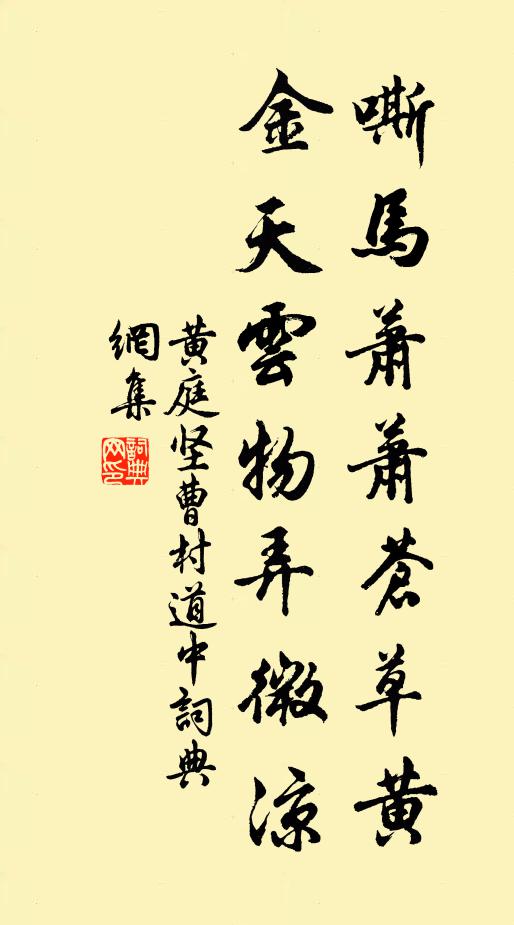 嘶馬蕭蕭蒼草黄
金天雲物弄微涼
黄庭坚曹村道中詞典
網集
詞典
网印